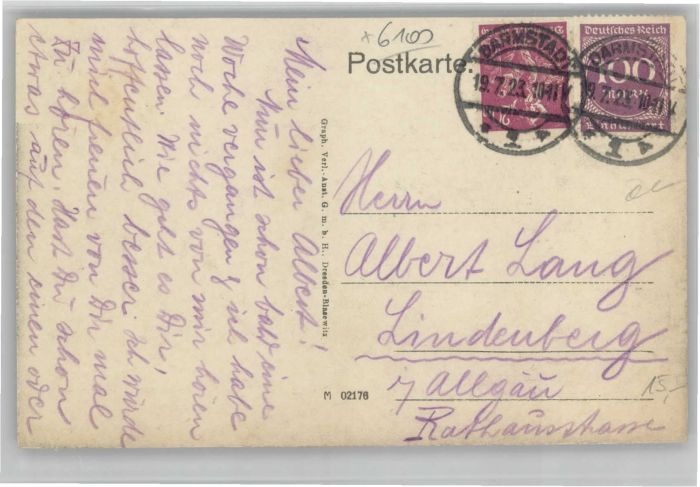 ×6100
Postkarte.
DARMSTADT
19.7.23. 10-11 V
1
Deutsches Reich
100
MARK
DARMSTADT
19.7.23. 10-11 V
1
Mein lieber Albert!
Nun ist schon bald eine
Woche vergangen & ich habe
noch nichts von mir hören
lassen. Wie geht es Dir,
hoffentlich besser, ich würde
mich freuen von Dir mal
zu hören. Hast Du schon
etwas auf den einen oder
Graph. Verl.-Anst. G. m. b. H., Dresden-Blasewitz
M 02176
Herrn
Albert Lang
Lindenberg
i/Allgäu
Rathausstrasse
15,-